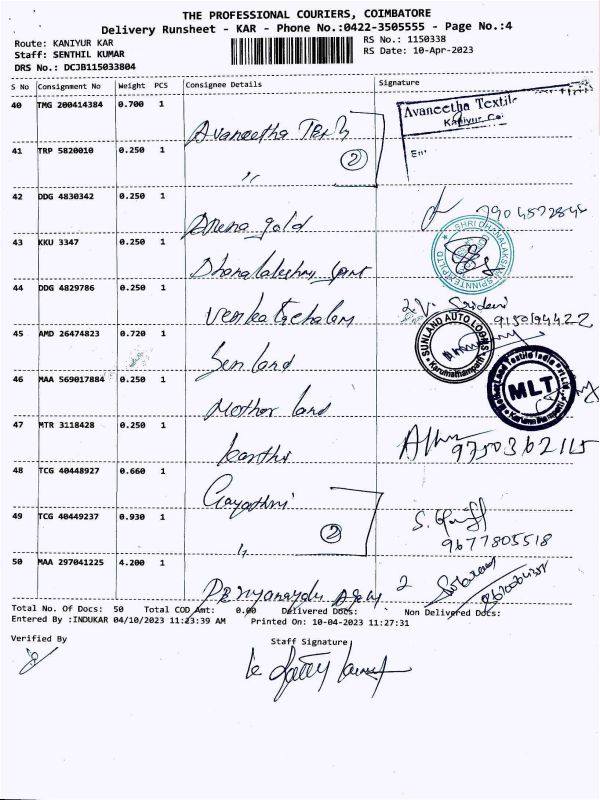 THE PROFESSIONAL COURIERS, COIMBATORE
Delivery Runsheet - KAR - Phone No.:0422-3505555 - Page No.:4
Route: KANIYUR KAR
RS No.: 1150338
Staff: SENTHIL KUMAR
RS Date: 10-Apr-2023
DRS No.: DCJB115033804
S No Consignment No Weight PCS Consignee Details Signature
40 TMG 200414384 0.700 1
Avaneetha Textile
Kaniyur, Co
Avaneetha Tex
41 TRP 5820010 0.250 1
2
〃
42 DDG 4830342 0.250 1
Arena gold
SHRI DHANALAKSHMI SPINNTEX P LTD
43 KKU 3347 0.250 1
Dhanalakshmi
44 DDG 4829786 0.250 1
Venkatachalam
Sridevi
45 AMD 26474823 0.720 1
SUNLAND AUTO LOONS
Karumathampatti
Sun land
46 MAA 569017884 0.250 1
MLT
Mother land
47 MTR 3118428 0.250 1
9750362115
48 TCG 40448927 0.660 1
Gayathri
49 TCG 40449237 0.930 1
2
9677805518
〃
50 MAA 297041225 4.200 1
2
Total No. Of Docs: 50 Total COD Amt: 0.00 Delivered Docs: Non Delivered Docs:
Entered By :INDUKAR 04/10/2023 11:23:39 AM Printed On: 10-04-2023 11:27:31
Verified By
Staff Signature